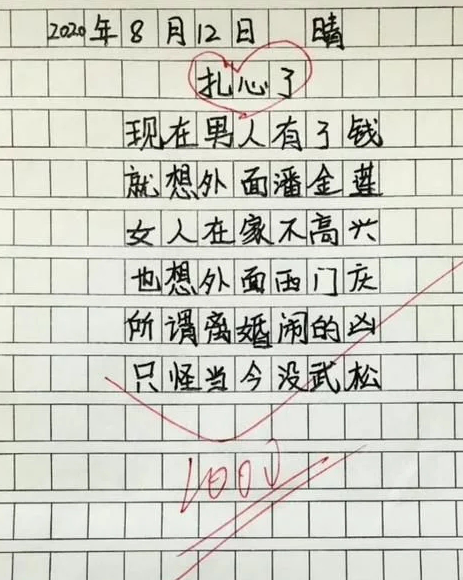 2020年8月12日 晴
扎心了
现在男人有了钱
就想外面潘金莲
女人在家不高兴
也想外面西门庆
所谓离婚闹的凶
只怪当今没武松
1000